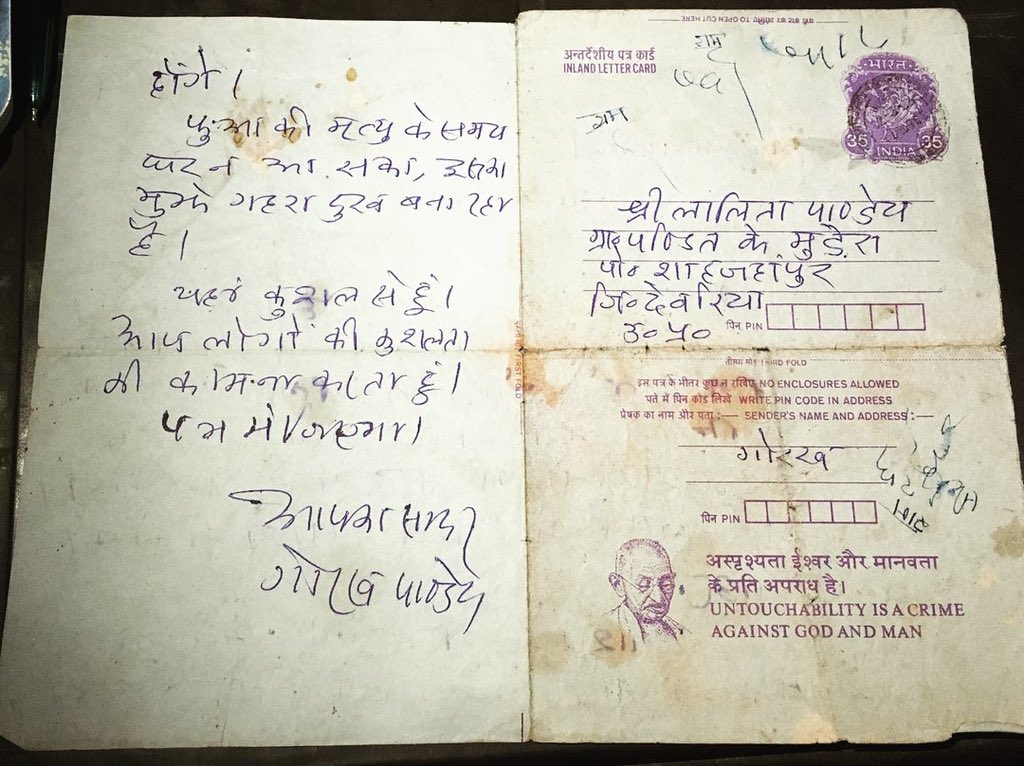 होंगे।
फुआ की मृत्यु के समय
घर न आ सका, इसका
मुझे गहरा दुख बना रहा
है।
यहां कुशल से हूं।
आप लोगों की कुशलता
की कामना करता हूं।
पत्र में
आपका
गोरख पाण्डेय
यहां काट कर खोलिए TO OPEN CUT HERE
अन्तर्देशीय पत्र कार्ड
INLAND LETTER CARD
राम
राम
भारत
35 35
INDIA
श्री लालिता पाण्डेय
ग्रा॰ पण्डित के मुड़ेरा
पो॰ शाहजहांपुर
जि॰ देवरिया
उ॰ प्र॰
पिन PIN
तीसरा मोड़ THIRD FOLD
FIRST FOLD
इस पत्र के भीतर कुछ न रखिए NO ENCLOSURES ALLOWED
पते में पिन कोड लिखें WRITE PIN CODE IN ADDRESS
प्रेषक का नाम और पता :— SENDER'S NAME AND ADDRESS :—
गोरख
पिन PIN
अस्पृश्यता ईश्वर और मानवता
के प्रति अपराध है।
UNTOUCHABILITY IS A CRIME
AGAINST GOD AND MAN